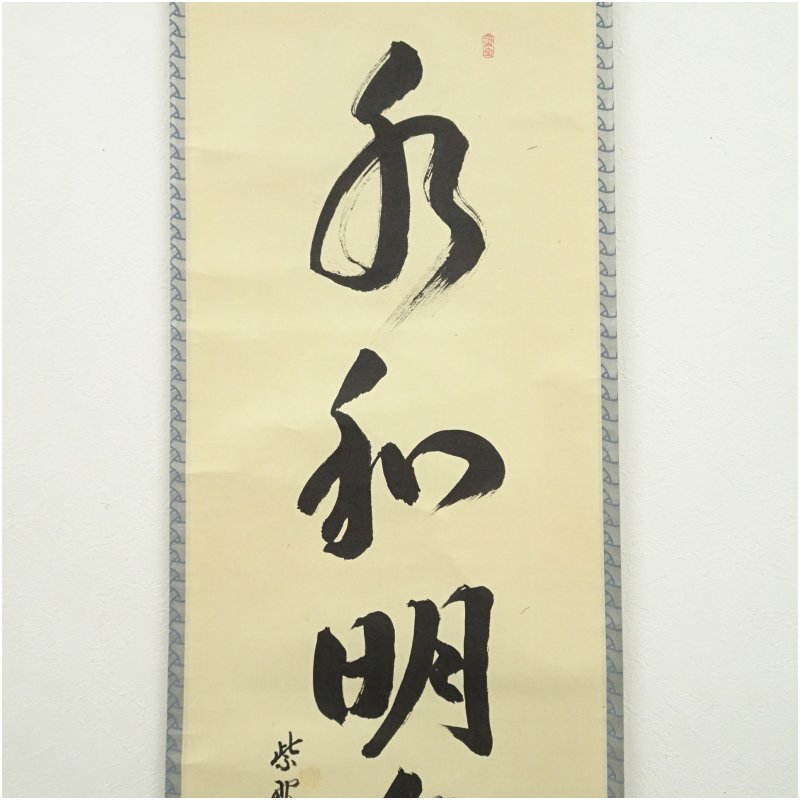 水和明
紫野